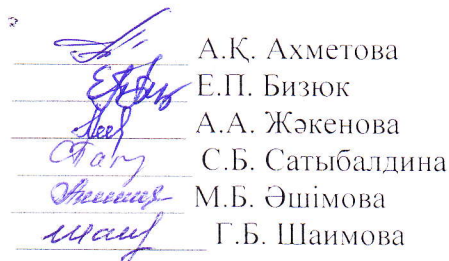 А.Қ. Ахметова
Е.П. Бизюк
А.А. Жәкенова
С.Б. Сатыбалдина
М.Б. Әшімова
Г.Б. Шаимова